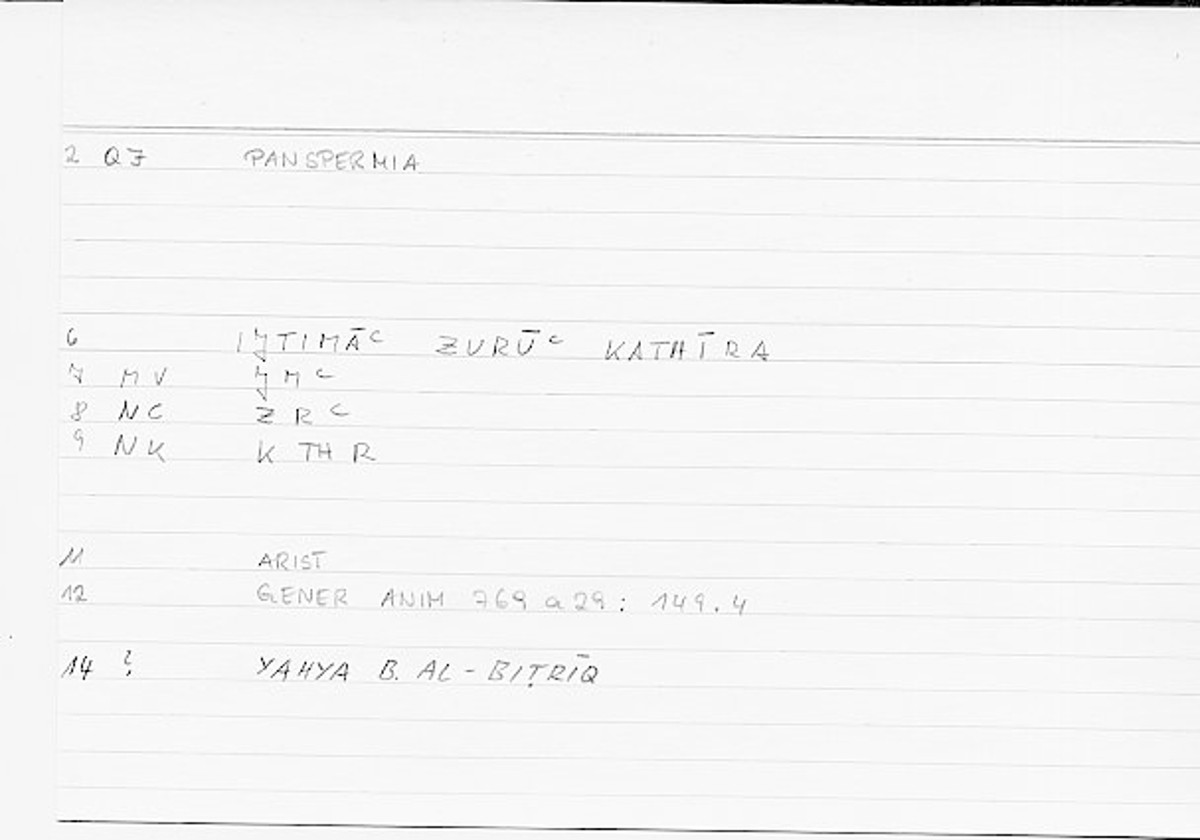 2 QJ PANSPERMIA
6 IJTIMĀc ZURŪc KATHĪRA
7 MV JMc
8 NC ZRc
9 NK K TH R
11 ARIST
12 GENER ANIM 769 a 29: 149.4
14 ? YAHYA B. AL-BIṬRĪQ